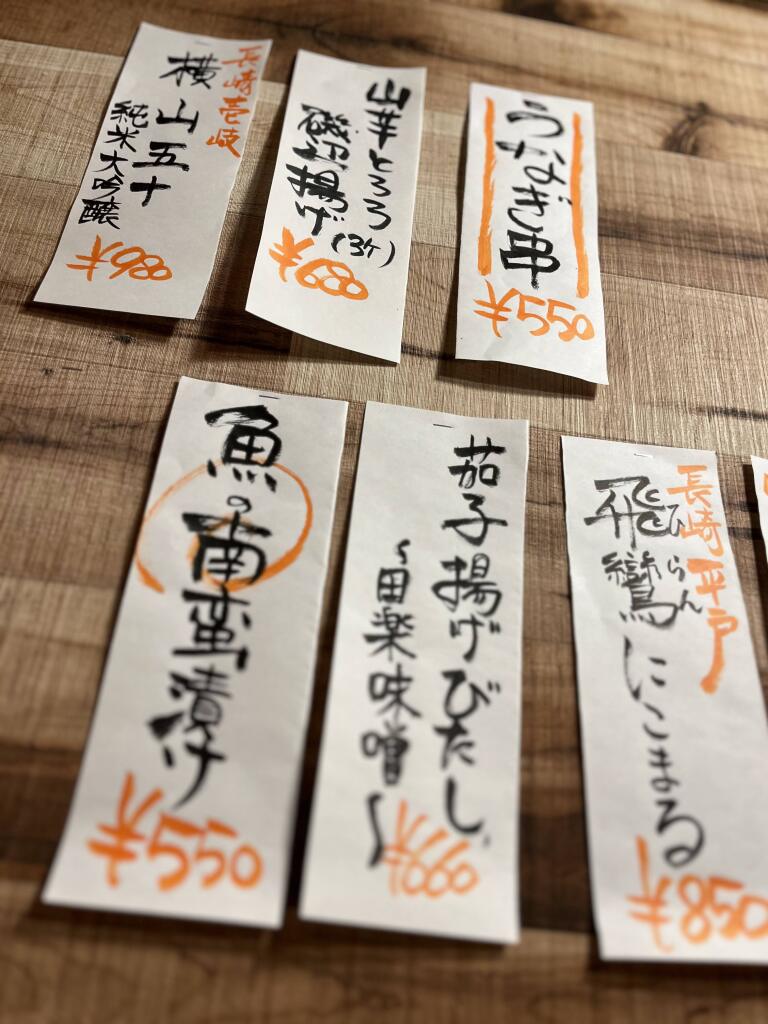 長崎壱岐
横山五十
純米大吟醸
¥980
山芋とろろ
磯辺揚げ(3ケ)
¥680
うなぎ串
¥550
魚の南蛮漬け
¥550
茄子揚げびたし
~田楽味噌~
¥660
長崎平戸
飛鸞にこまる
ひらん
¥850